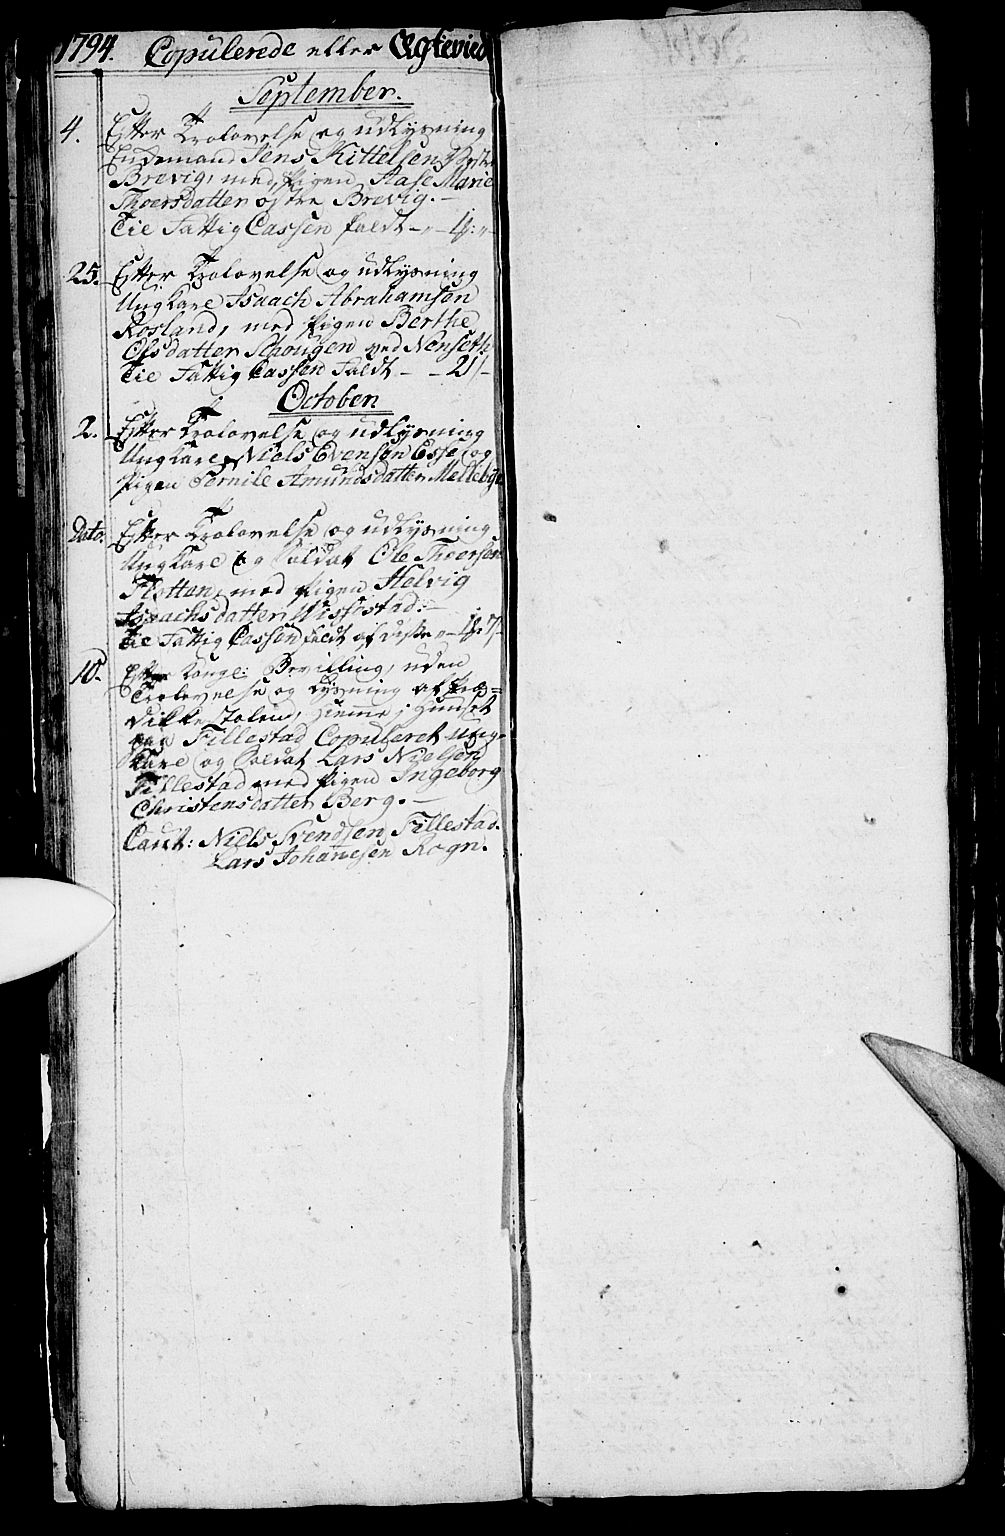 1794. Copulerede eller Ægtevied
September.
4. Efter Trolovelse og udlysning
Enkemand Jens Kittelsen
Brevig, med Pigen Aase Marie
Thoersdatter østre Brevig. —
Tie Fattig Cassen faldt
25. Efter Trolovelse og udlysning
Ung Karl Isaach Abrahamsøn
Rosland, med Pigen Berthe
Olsdatter Schougen ved Nenseth
Tie Fattig Cassen faldt - - 21/-
October
2. Efter Trolovelse og udlysning
Ung Karl Niels Evensøn Esse og
Pigen Pernile Amundsdatter Mellebye
Dato. Efter Trolovelse og udlysning
Ung Karl og Soldat Ole Thoersen
Flotten, med Pigen Helvig
Isaachsdatter Wissestad. —
Tie Fattig Cassen faldt af disse
10. Efter Kongl: Bevilling, uden
Trolovelse og Lysning af Præ=
dikke stolen, hiemme i Huuset
paa Fillestad Copuleret Ung=
Karl og Soldat Lars Nielsen
Fillestad med Pigen Ingeborg
Christensdatter Berg. —
Caut: Niels Svendsen Fillestad.
Lars Johannesen Rogn.